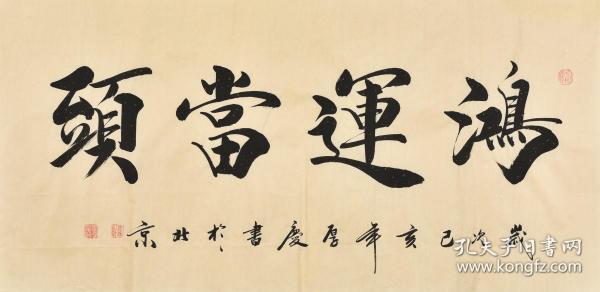 鴻運當頭
歲次己亥年厚慶書於北京
孔夫子旧书网
www.kongfz.com